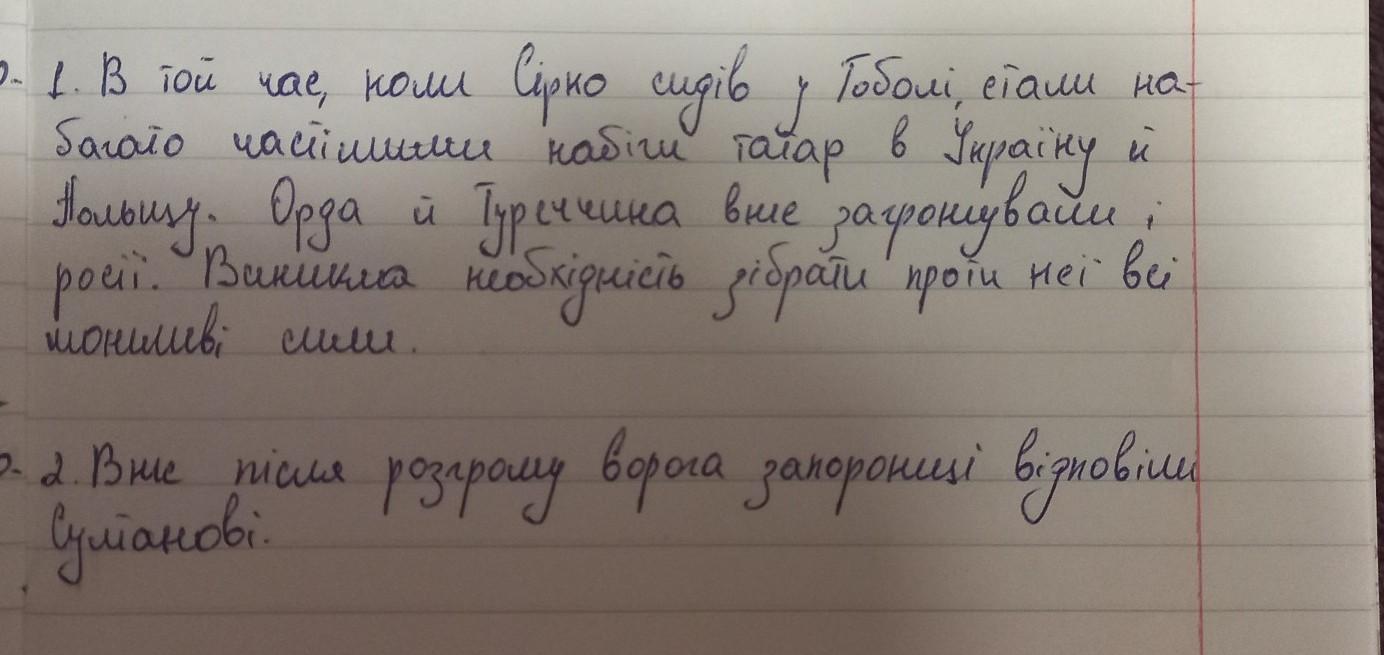 1. В той час, коли Сірко сидів у Тоболі, стали на-
багато частішими набіги татар в Україну й
Польщу. Орда й Туреччина вже загрожували і
росії. Виникла необхідність зібрати проти неї всі
можливі сили.
2. Вже після розгрому ворога запорожці відповіли
Султанові.